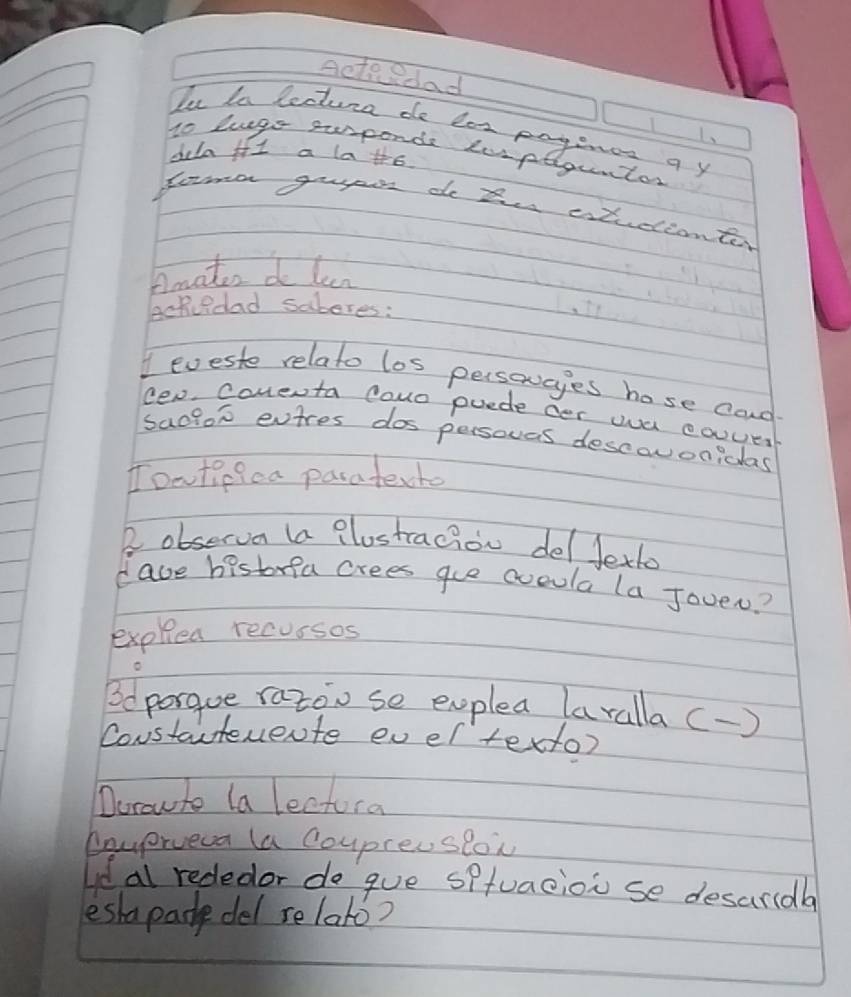 Actividad
Lee la lectura de las paginas 9 y
10 luego responde las preguntas
dela #1 a la #6.
forma grupos de tres estudiantes
Amates de leer
actividad saberes:
1 eveste relato los persovages no se cono-
cen. Comenta como puede ser una conver
sacion entres dos personas desconocidas
Identifica paratexto
2 observa la ilustración del texto
¿ave historia crees que avevla la Joven?
explica recursos
3¿ porque razón se emplea la ralla (-)
Constantemente en el texto?
Durante la lectura
Comprueva la Comprensión
1¿ al rededor de que situacion se desarrolla
esta parte del relato?